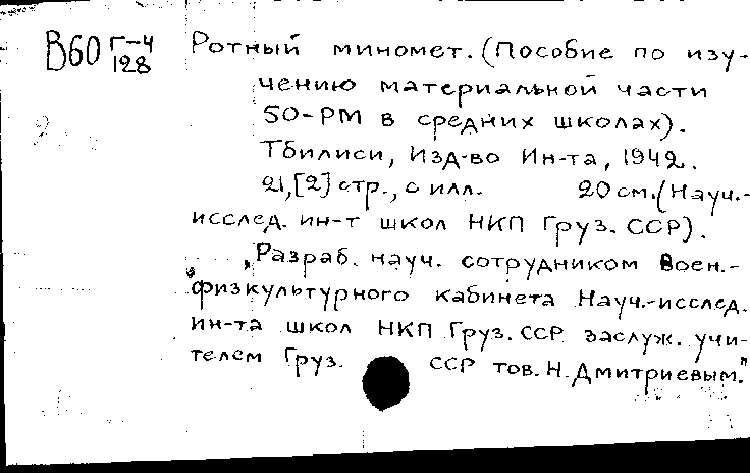 В60 Г-4 Ротный миномет. (Пособие по изу-
128
чению материальной части
50-РМ в средних школах).
Тбилиси, Изд-во Ин-та, 1942.
21,[2] стр., с илл. 20 см. (Науч.-
исслед. ин-т школ НКП Груз. ССР).
„Разраб. науч. сотрудником Воен.-
физкультурного кабинета Науч.-исслед.
ин-та школ НКП Груз. ССР заслуж. учи-
телем Груз. ССР тов. Н. Дмитриевым."